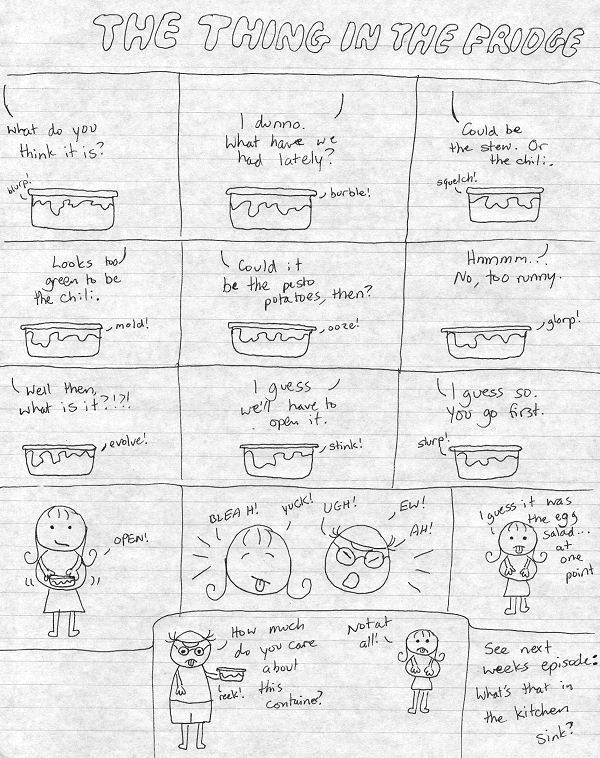 THE THING IN THE FRIDGE
What do you
think it is?
blurp!
I dunno.
What have we
had lately?
burble!
Could be
the stew. Or
the chili.
squelch!
Looks too
green to be
the chili.
mold!
Could it
be the pesto
potatoes, then?
ooze!
Hmmmm...
No, too runny.
glorp!
Well then,
what is it?!?!
evolve!
I guess
we'll have to
open it.
stink!
I guess so.
You go first.
slurp!
OPEN!
BLEAH!
YUCK!
UGH!
EW!
AH!
I guess it was
the egg
salad...
at
one
point
How much
do you care
about
this
container?
reek!
Not at
all!
See next
weeks episode:
What's that in
the kitchen
sink?